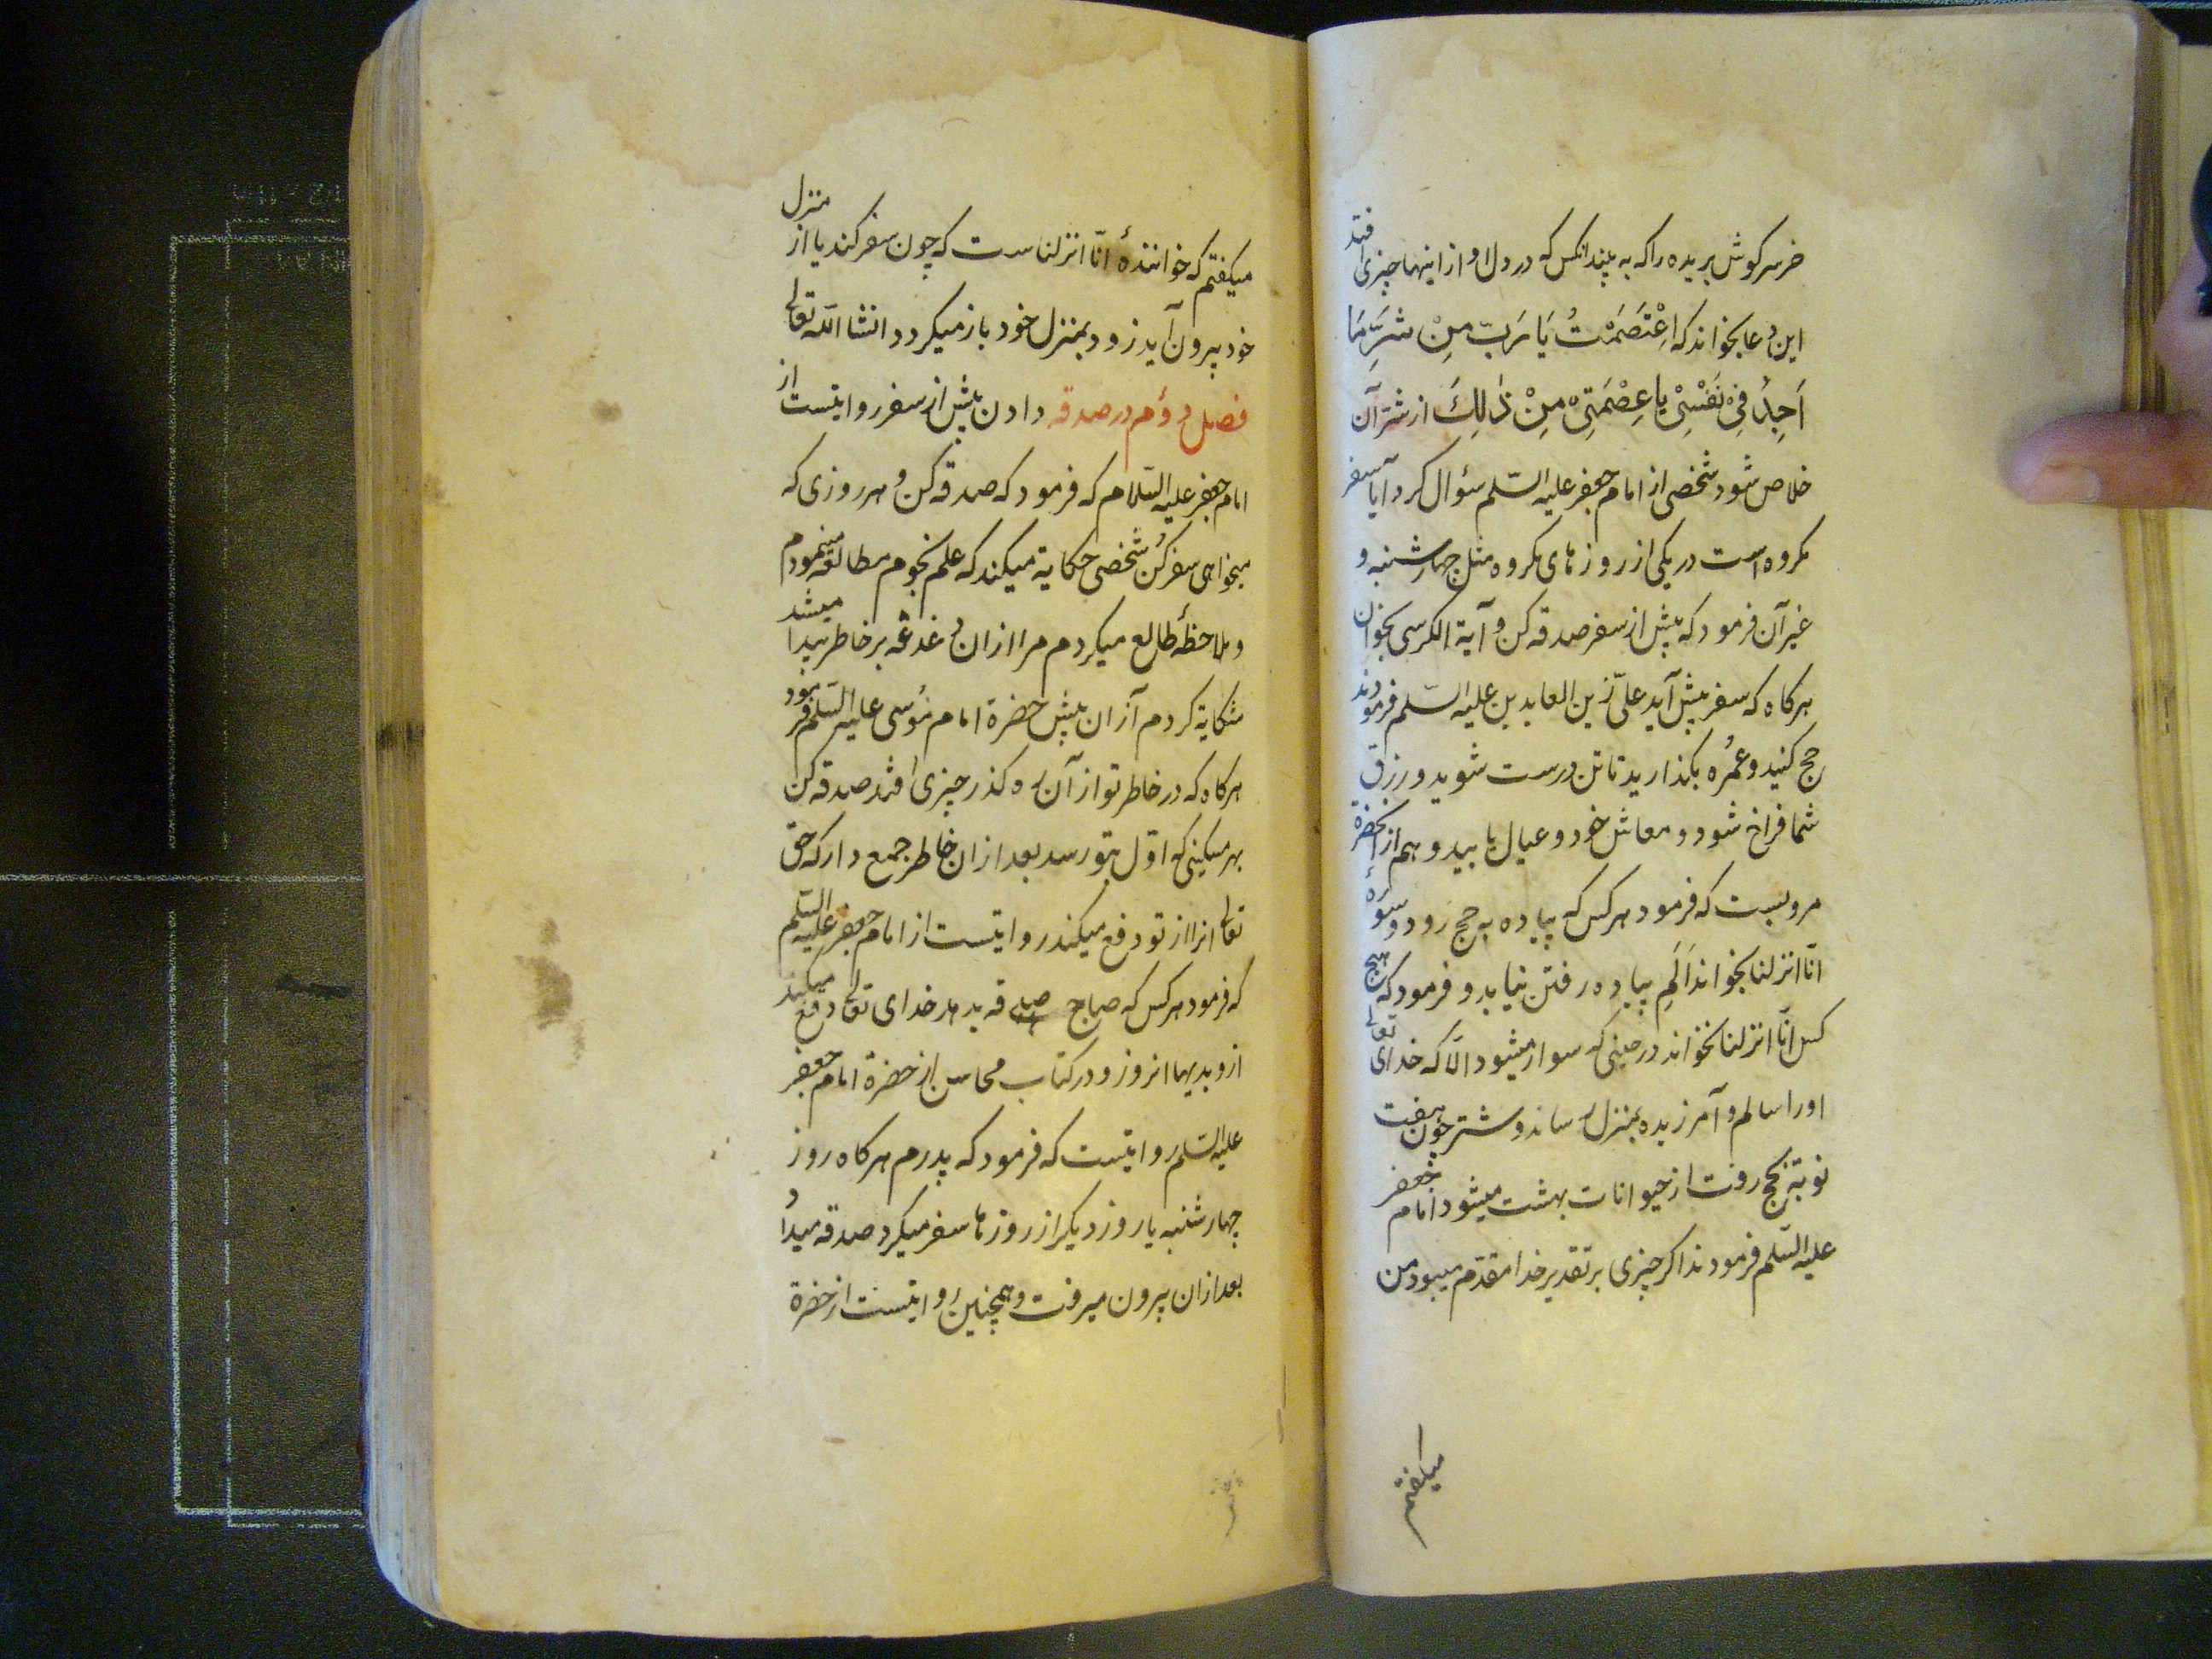 خر سر کوش بریده را که به بیند انکس که در دل او از اینها چیزی افتد
این دعا بخواند که اِعْتَصَمْتُ یَا رَبِّ مِنْ شَرِّ مَا
اَجِدُ فِیْ نَفْسِیْ یا عِصْمَتِیْ مِنْ ذٰلِكَ از شر آن
خلاص شود شخصی از امام جعفر علیه السّلم سؤال کرد آیا سفر
مکروه است در یکی از روزهای مکروه مثل چهارشنبه و
غیر آن فرمود که پیش از سفر صدقه کن و آیة الکرسی بخوان
هرکاه که سفر پیش آید علیّ زین العابدین علیه السّلم فرمودند
حج کنید و عمُره بکذارید تا تن درست شوید و رزق
شما فراخ شود و معاش خود و عیال یابید و هم از آنحضرة
مرویست که فرمود هر کس که پیاده به حج رود و سوره
انّا انزلنا بخواند اَلَمِ پیاده رفتن نیابد و فرمود که هیچ
کس انّا انزلنا نخواند در حینی که سوار میشود الّا که خدای تعالی
اورا سالم و آمرزیده بمنزل رساند و شتر چون هفت
نوبة بحج رفت از حیوانات بهشت میشود امام جعفر
علیه السّلم فرمودند اکر چیزی بر تقدیر خدا مقدّم میبود من
میکفتم
میکفتم که خوانندهٔ انّا انزلناست که چون سفر کند یا از منزل
خود بیرون آید زود بمنزل خود باز میکردد انشا الله تعالی
فصل دوّم در صدقه دادن پیش از سفر روایتست از
امام جعفر علیه السّلام که فرمود که صدقه کن و هر روزی که
میخواهی سفر کُن شخصی حکایة میکند که علم نجوم مطالعه مینمودم
و ملاحظهٔ طالع میکردم مرا از ان دغدغه بر خاطر پیدا میشد
شکایة کردم آزان پیش حضرة امام مُوسی علیه السّلم فرمود
هرکاه که در خاطر تو از آن ره کذر چیزی افتد صدقه کن
بهر مسکینی که اوّل بتو رسد بعد از ان خاطر جمع دار که حق
تعالی انرا از تو دفع میکند روایتست از امام جعفر علیه السّلم
که فرمود هر کس که صباح صدقه بدهد خدای تعالی دفع میکند
ازو بدیها انروز و در کتاب محاسن از حضرة امام جعفر
علیه السّلم روایتست که فرمود که پدرم هرکاه روز
چهارشنبه یا روز دیکر از روزها سفر میکرد صدقه میداد
بعد ازان بیرون میرفت و همچنین روایتست از حضرة